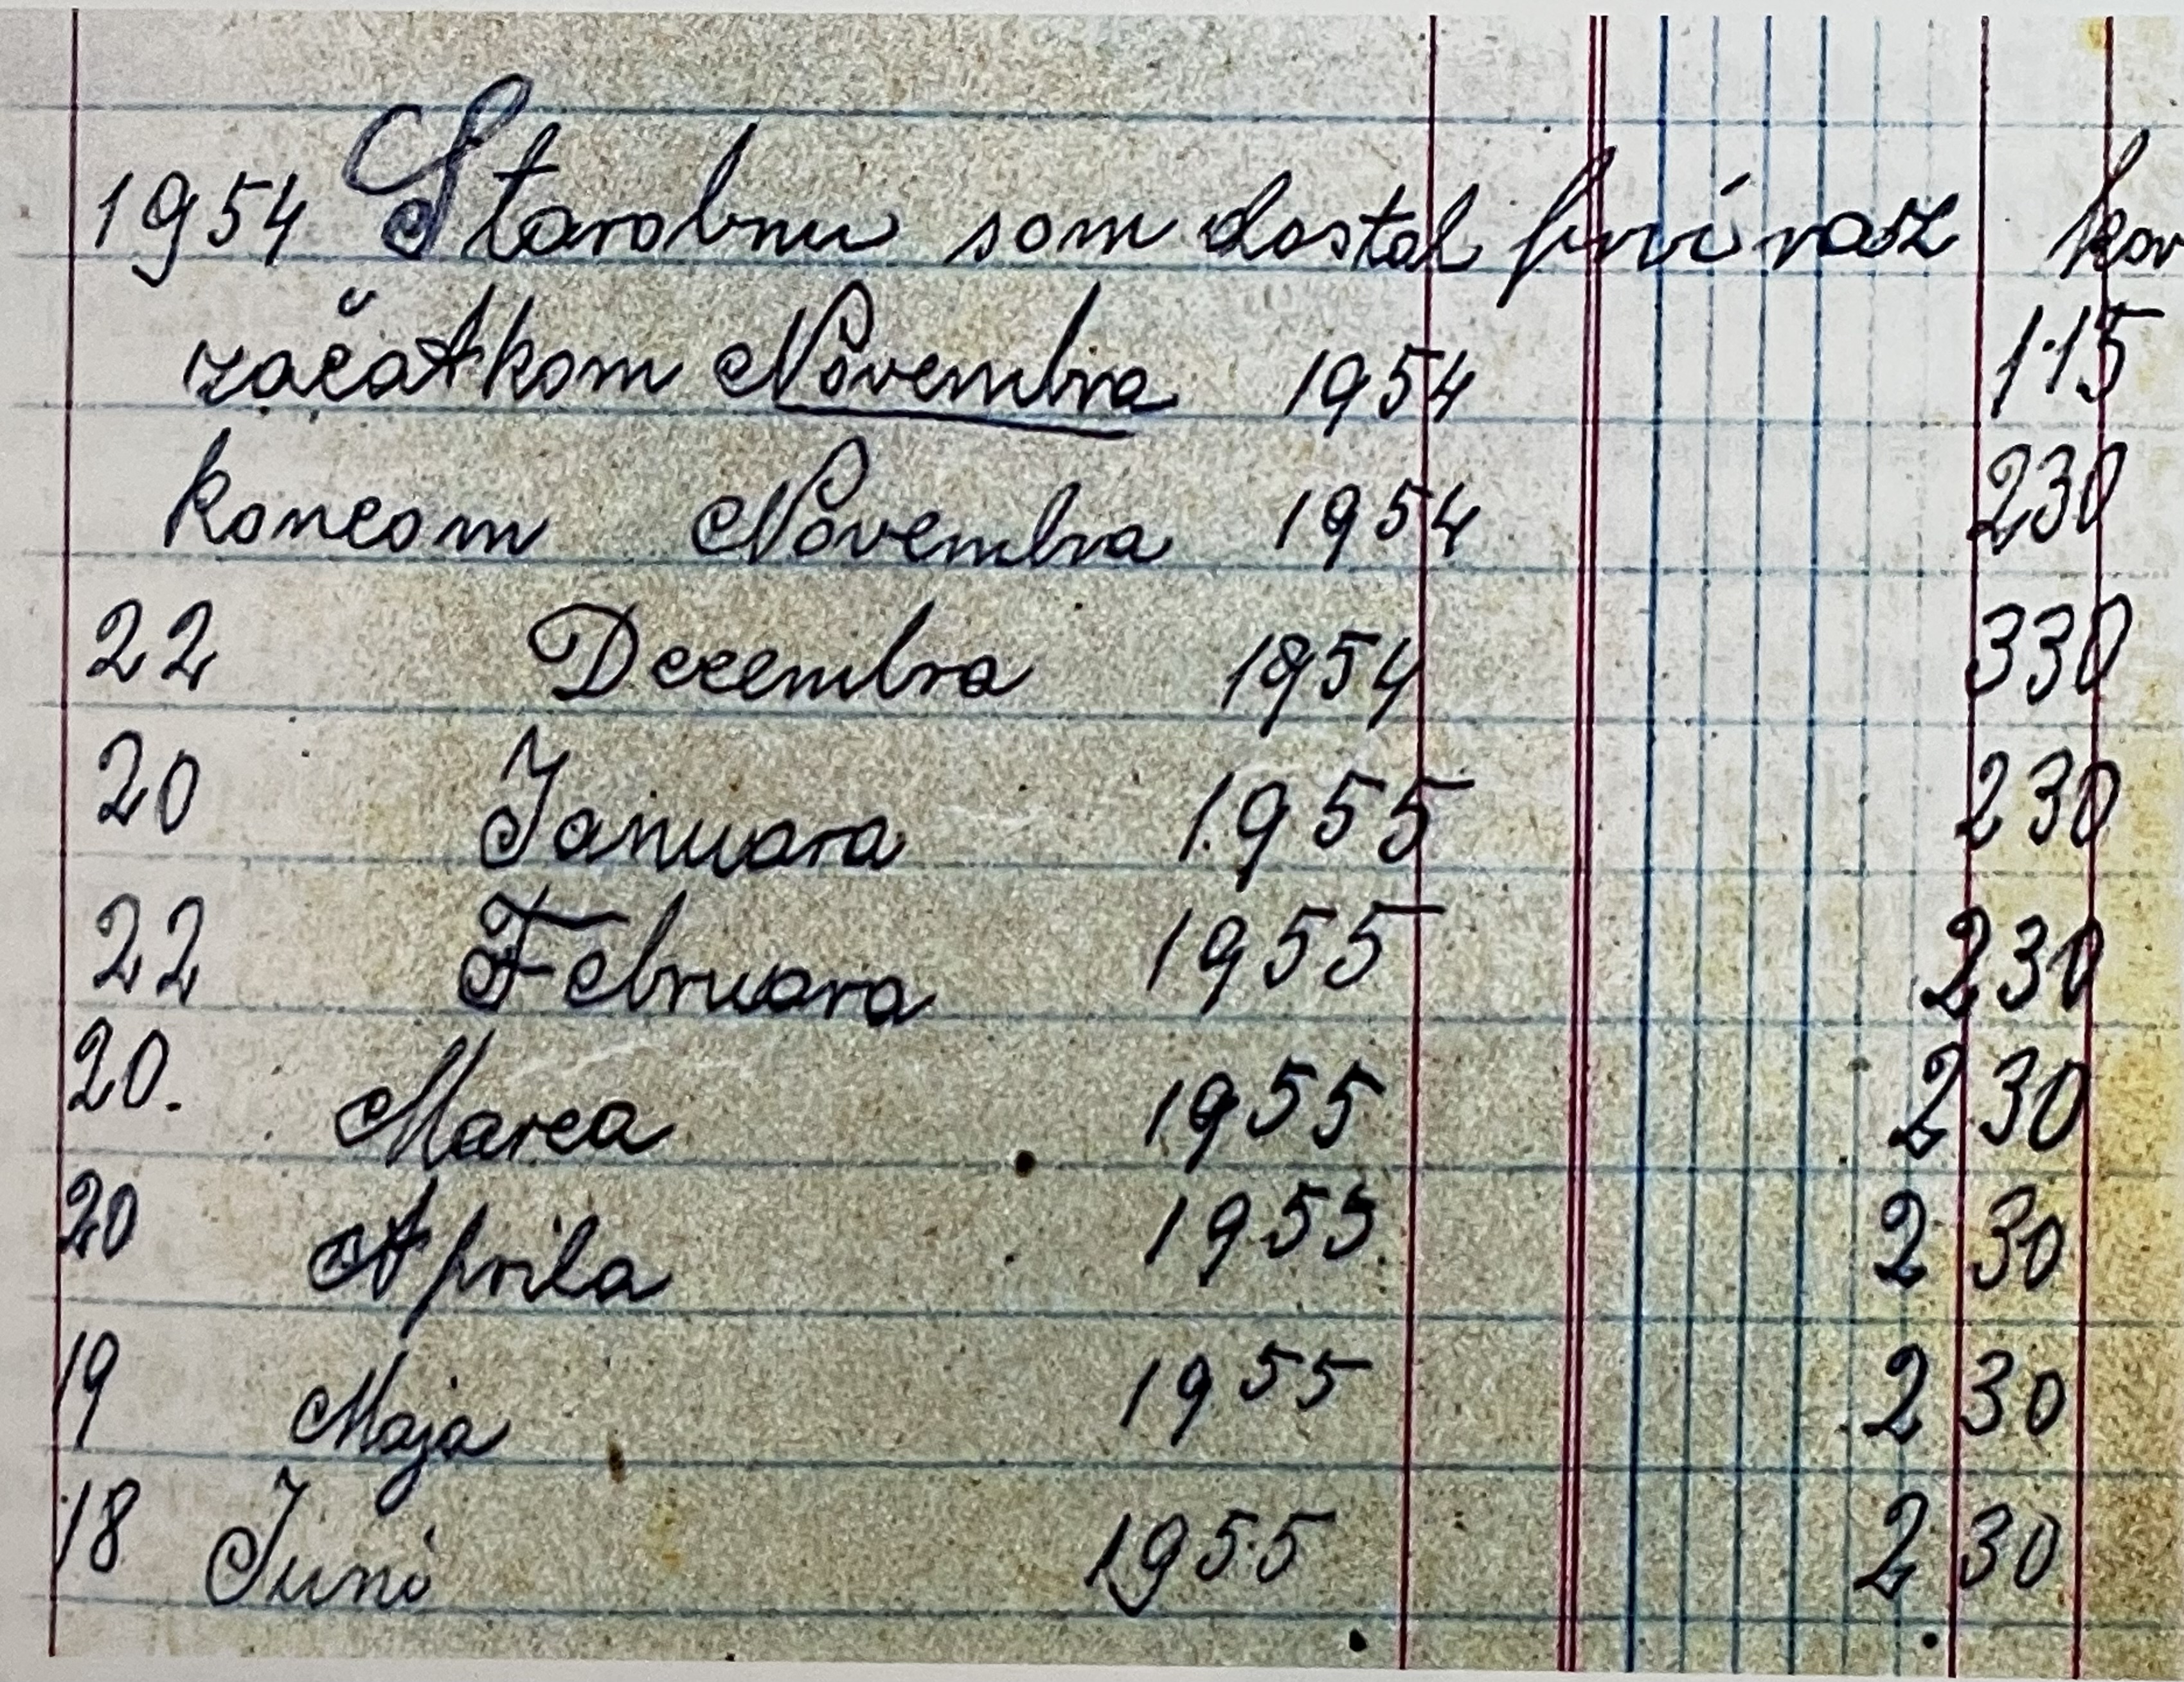 1954 Starobnu som dostal prvívraz kor
začatkom Novembra 1954 115
koncom Novembra 1954 230
22 Decembra 1954 330
20 Januara 1955 230
22 Februara 1955 230
20. Marca 1955 230
20 Aprila 1955 230
19 Maja 1955 230
18 Juni 1955 230